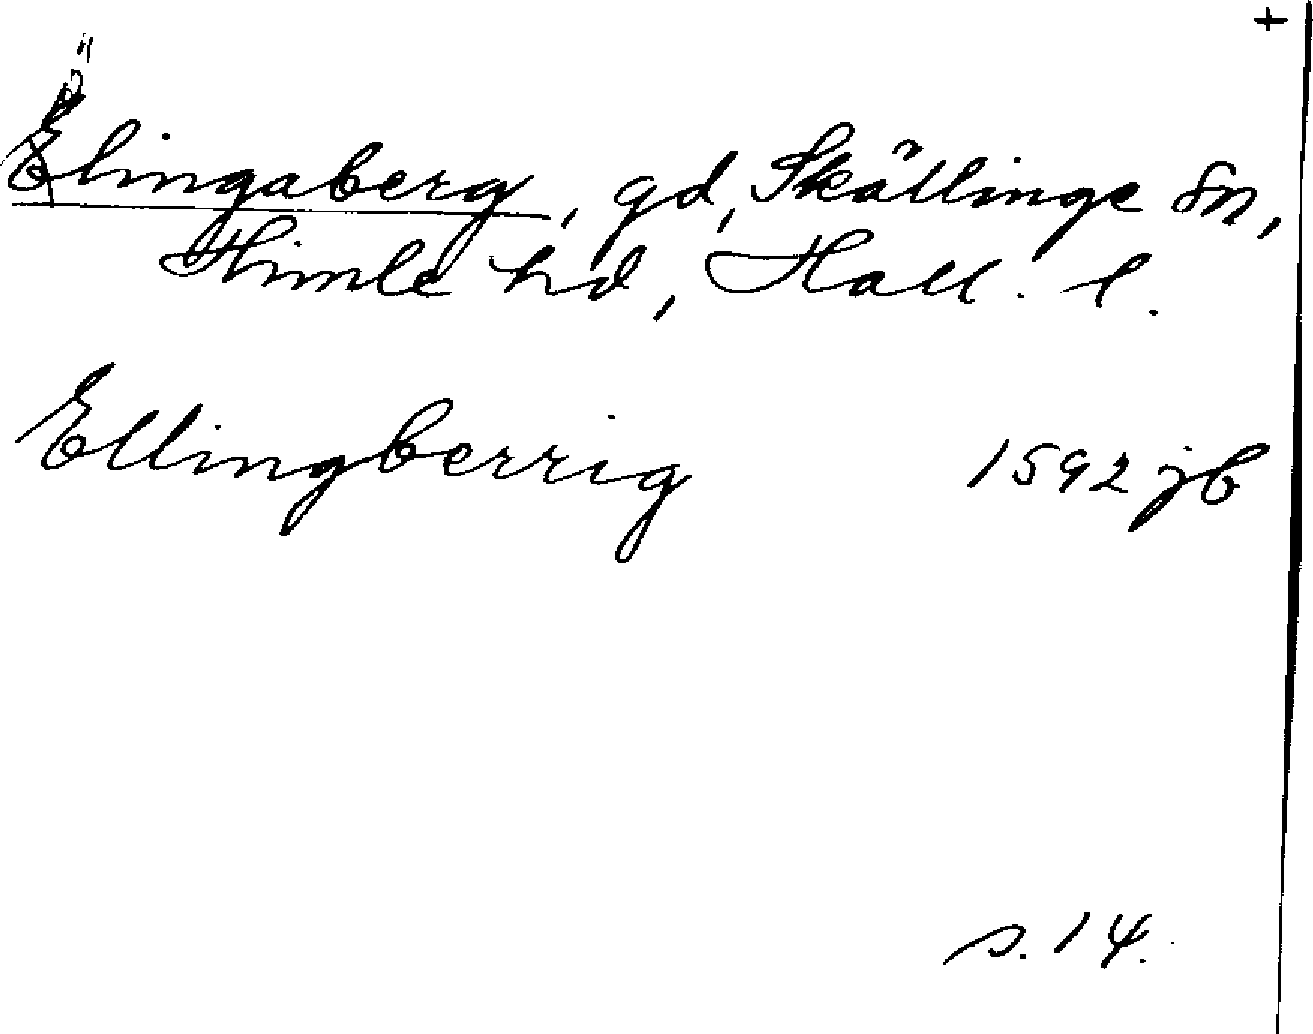 +
Älingaberg, gd, Skällinge sn,
Himle hd, Hall. l.
Ellingberrig 1592 jb
s. 14.